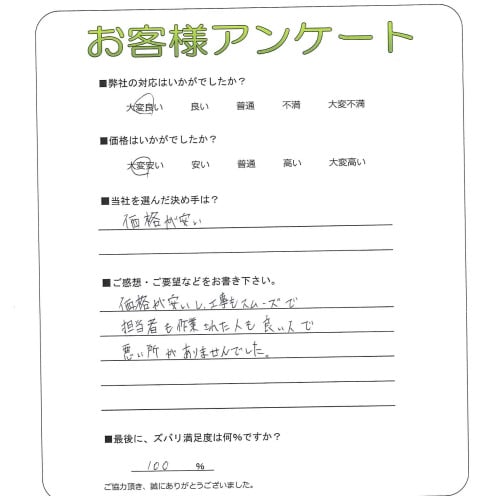 お客様アンケート
■弊社の対応はいかがでしたか？
大変良い 良い 普通 不満 大変不満
■価格はいかがでしたか？
大変安い 安い 普通 高い 大変高い
■当社を選んだ決め手は？
価格が安い
■ご感想・ご要望などをお書き下さい。
価格が安いし、工事もスムーズで
担当者も作業された人も良い人で
悪い所がありませんでした。
■最後に、ズバリ満足度は何％ですか？
100 ％
ご協力頂き、誠にありがとうございました。